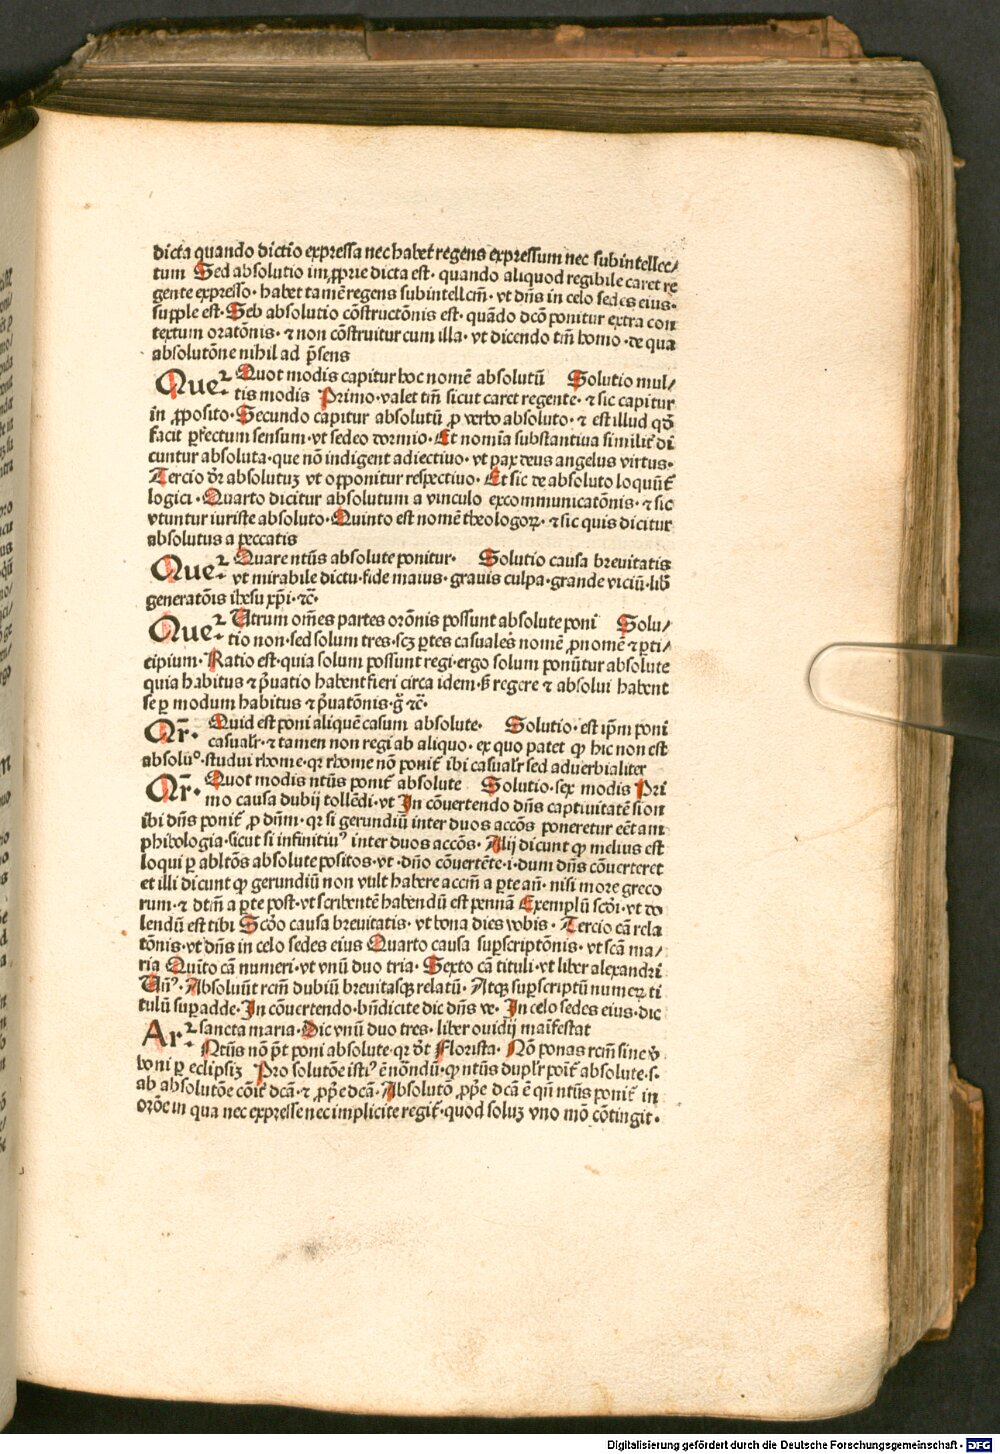 dicta quando dictio expressa nec habet regens expressum nec subintellec/
tum Sed absolutio im ꝓprie dicta est· quando aliquod regibile caret re
gente expresso· habet tamē regens subintellcm̄· vt dn̄s in celo sedes eius·
supple est· Seb absolutio cōstructōnis est· quādo dcō ponitur extra con
textum oratōnis· ⁊ non cōstruitur cum illa· vt dicendo tm̄ homo· de qua
absolutōne nihil ad p̄sens
Que2· Quot modis capitur hoc nomē absolutū Solutio mul/
tis modis Primo· valet tm̄ sicut caret regente· ⁊ sic capitur
in ꝓposito· Secundo capitur absolutū ꝓ verbo absoluto· ⁊ est illud qd̄
facit ꝑfectum sensum· vt sedeo dormio· Et nomīa substantiua similit̄ di
cuntur absoluta· que nō indigent adiectiuo· vt pax deus angelus virtus·
Tercio dr̄ absolutuꝫ vt opponitur respectiuo· Et sic de absoluto loquūt̄
logici· Quarto dicitur absolutum a vinculo excommunicatōnis· ⁊ sic
vtuntur iuriste absoluto· Quinto est nomē theologoꝝ· ⁊ sic quis dicitur
absolutus a peccatis
Que2· Quare ntūs absolute ponitur· Solutio causa breuitatis
vt mirabile dictu· fide maius· grauis culpa· grande viciū· lib̄
generatōis ihesu xp̄i· ⁊c̄·
Que2· Utrum om̄es partes orōnis possunt absolute poni Solu/
tio non· sed solum tres· scꝫ ꝑtes casuales nomē ꝓnomē ⁊ ꝑti/
cipium· Ratio est· quia solum possunt regi· ergo solum ponūtur absolute
quia habitus ⁊ p̄uatio habent fieri circa idem· s̄ regere ⁊ absolui habent
se ꝑ modum habitus ⁊ p̄uatōnis· g̊ ⁊c̄·
Qr̄· Quid est poni aliquē casum absolute· Solutio· est ip̄m poni
casualr̄· ⁊ tamen non regi ab aliquo· ex quo patet ꝙ hic non est
absolū⁰· studui rhome· qr rhome nō ponit̄ ibi casualr̄ sed aduerbialiter
Qr̄· Quot modis ntūs ponit̄ absolute Solutio· sex modis Pri
mo causa dubij tollēdi· vt In cōuertendo dn̄s captiuitatē sion
ibi dn̄s ponit̄ ꝓ dn̄m· qr si gerundiū inter duos accōs poneretur eēt am
phibologia· sicut si infinitiuꝰ inter duos accōs· Alij dicunt ꝙ melius est
loqui ꝑ abltōs absolute positos· vt· dn̄o cōuertēte· i· dum dn̄s cōuerteret
et illi dicunt ꝙ gerundiū non vult habere accm̄ a ꝑte an̄· nisi more greco
rum· ⁊ dtm̄ a ꝑte post· vt scribentē habendū est pennā Exemplū scdi· vt do
lendū est tibi Scdo causa breuitatis· vt bona dies vobis· Tercio cā rela
tōnis· vt dn̄s in celo sedes eius Quarto causa suꝑscriptōnis· vt scā ma/
ria Quīto cā numeri· vt vnū duo tria· Sexto cā tituli· vt liber alexandri
Un̄ꝰ· Absoluūt rcm̄ dubiū breuitasqꝫ relatū· Atqꝫ suꝑscriptū numeꝝ ti
tulū suꝑadde· In cōuertendo· bn̄dicite dic dn̄s ve· In celo sedes eius· dic
Ar2· sancta maria· Dic vnū duo tres· liber ouidij maīfestat
Ntūs nō p̄t poni absolute· qr dt̄ Florista· Nō ponas rcm̄ sine v̄
boni ꝑ eclipsiꝫ Pro solutōe istiꝰ ē nōndū· ꝙ ntūs duplr̄ poīt̄ absolute· s·
ab absolutōe cōit̄ dcā· ⁊ ꝓp̄e dcā· Absolutō ꝓp̄e dcā ē qn̄ ntūs ponit̄ in
orōe in qua nec expresse nec implicite regit̄· quod soluꝫ vno mō cōtingit·
Digitalisierung gefördert durch die Deutsche Forschungsgemeinschaft - DFG